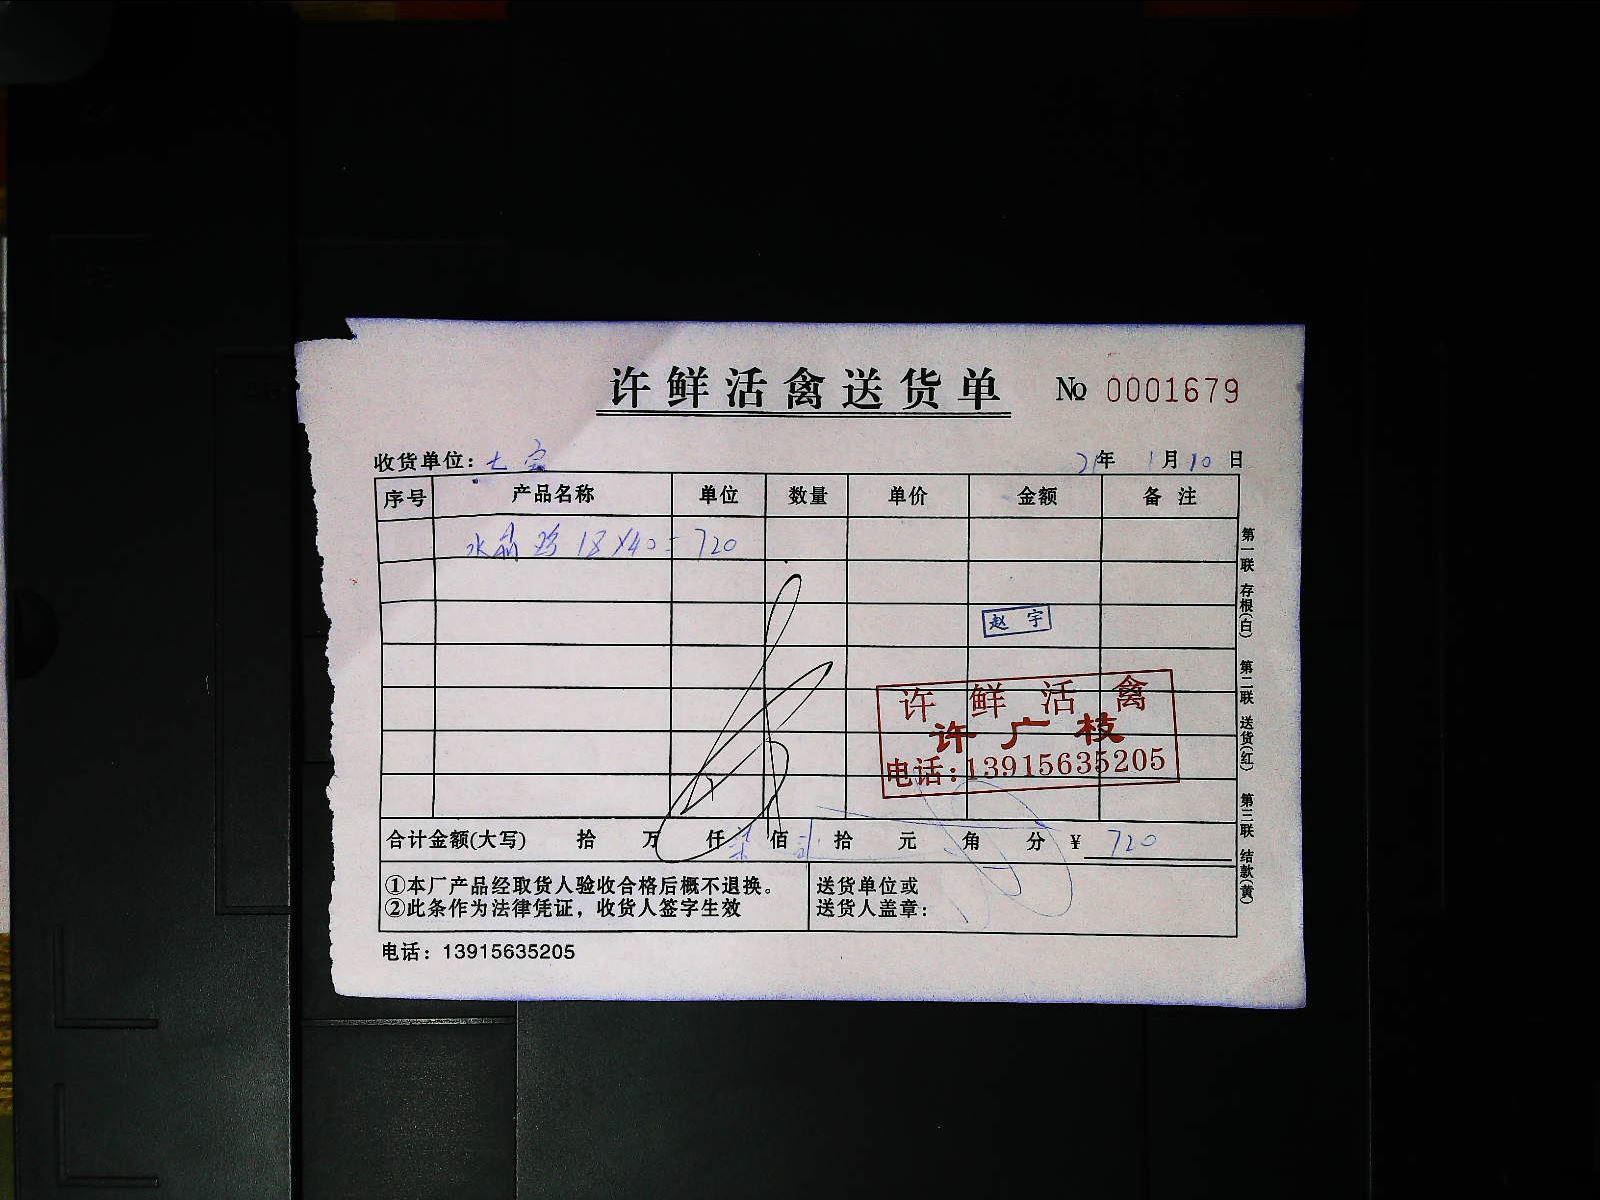 许鲜活禽送货单 № 0001679
收货单位：七宝 21年 1月10日
序号 产品名称 单位 数量 单价 金额 备注
水晶鸡 18×40=720
赵宇
许鲜活禽
许广枝
电话：13915635205
合计金额(大写) 拾 万 仟 柒佰 贰拾 元 角 分 ¥ 720
①本厂产品经取货人验收合格后概不退换。
②此条作为法律凭证，收货人签字生效
送货单位或
送货人盖章：
电话：13915635205
第一联 存根(白) 第二联 送货(红) 第三联 结款(黄)